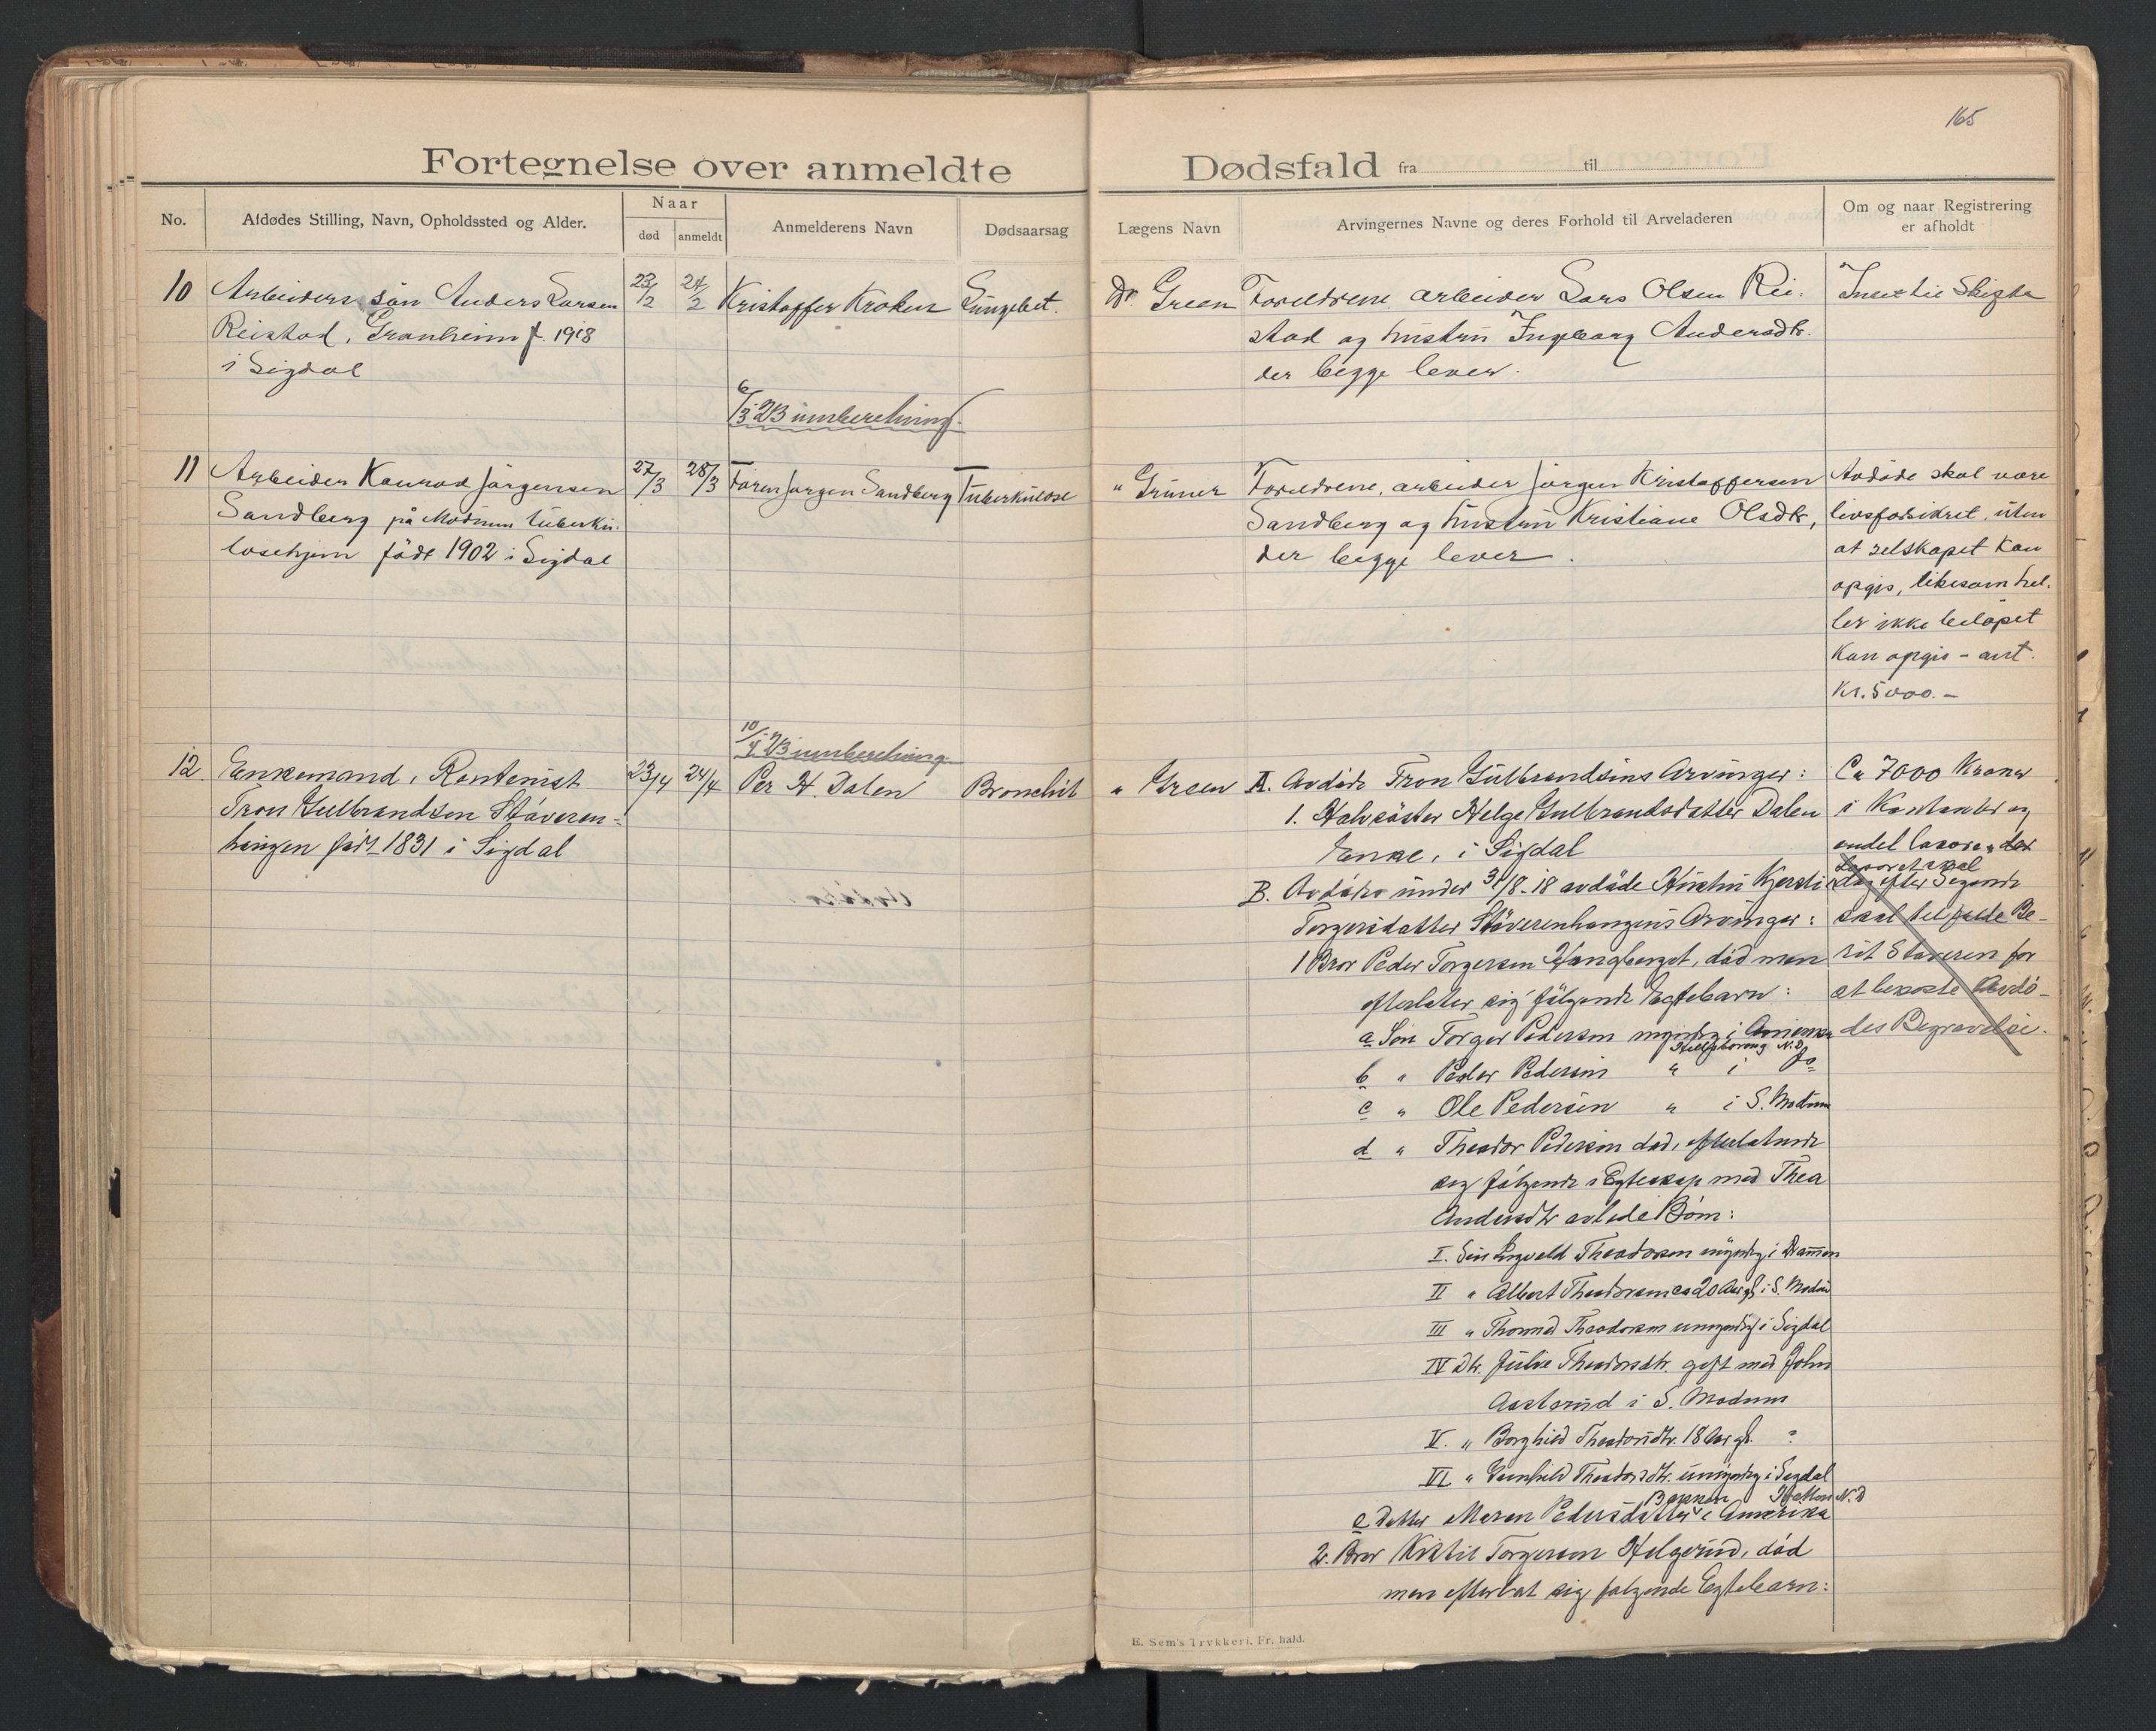 165
Fortegnelse over anmeldte Dødsfald fra til
No.
Afdødes Stilling, Navn, Opholdssted og Alder.
Naar
død
anmeldt
Anmelderens Navn
Dødsaarsag
Lægens Navn
Arvingernes Navne og deres Forhold til Arveladeren
Om og naar Registrering
er afholdt
10
Arbeiders søn Anders Larsen
Reistad, Granheim f. 1918
i Sigdal
23/2
24/2
Kristoffer Kroken
Lungebet.
Dr. Green
Foreldrene arbeider Lars Olsen Rei-
stad og hustru Ingeborg Andersdtr.
der begge lever.
Intet til Skifte
6/3 23 innberetning.
11
Arbeider Konrad Jørgensen
Sandberg på Modum tuberku-
losehjem født 1902 i Sigdal
27/3
28/3
Faren Jørgen Sandberg
Tuberkulose
" Grüner
Foreldrene, arbeider Jørgen Kristoffersen
Sandberg og hustru Kristiane Olsdtr,
der begge lever.
Avdøde skal være
livsforsikret, uten
at selskapet kan
opgis, likesom hel-
ler ikke beløpet
kan opgis - ant.
Kr. 5000.-
10/4 23 innberetning
12.
Enkemand, Rentenist
Tron Gulbrandsen Støveren-
hangen født 1831 i Sigdal
23/4
24/4
Per H. Dalen
Bronchit
" Green
A. Avdøde Tron Gulbrandsens Arvinger:
1. Halvsøster Helge Gulbrandsdatter Dalen
Enke, i Sigdal
B. Avdødes under 31/8-18 avdøde Hustru Kjersti
Torgersdatter Støverenhangens Arvinger:
1 Bror Peder Torgersen Hangberget, død men
efterlater sig følgende Egtebarn:
a Søn Torger Pedersen myndig i Amerika
Hillsboroug N.D
b " Peder Pedersen " i Do
c " Ole Pedersen " i S. Modum
d " Theodor Pedersen død, efterlatende
sig følgende i Egteskap med Thea
Andersdtr avlede Børn:
I. Søn Sigvald Theodorsen myndig i Drammen
II " Albert Theodorsen ca 20 Aar gl. i S. Modum
III " Thomas Theodorsen umyndig i Sigdal
IV Dtr. Julie Theodorsdtr. gift med John
Aasterud i S. Modum
V. " Borghild Theodorsdtr. 18 Aar gl. "
VI " Gunhild Theodorsdtr. umyndig i Sigdal
Bakken Hatton N.D
e Datter Maren Pedersdatter i Amerika
2. Bror Kittil Torgersen Helgerud, død
men efterlat sig følgende Egtebarn:
Ca 7000 Kroner
i Kontanter og
endel Løsøre, der
Løsøret skal
dog efter Sigende
skal tilfalde Be-
rit Støveren for
at bekoste Avdø-
des Begravelse.
E. Sem's Trykkeri. Fr. hald.